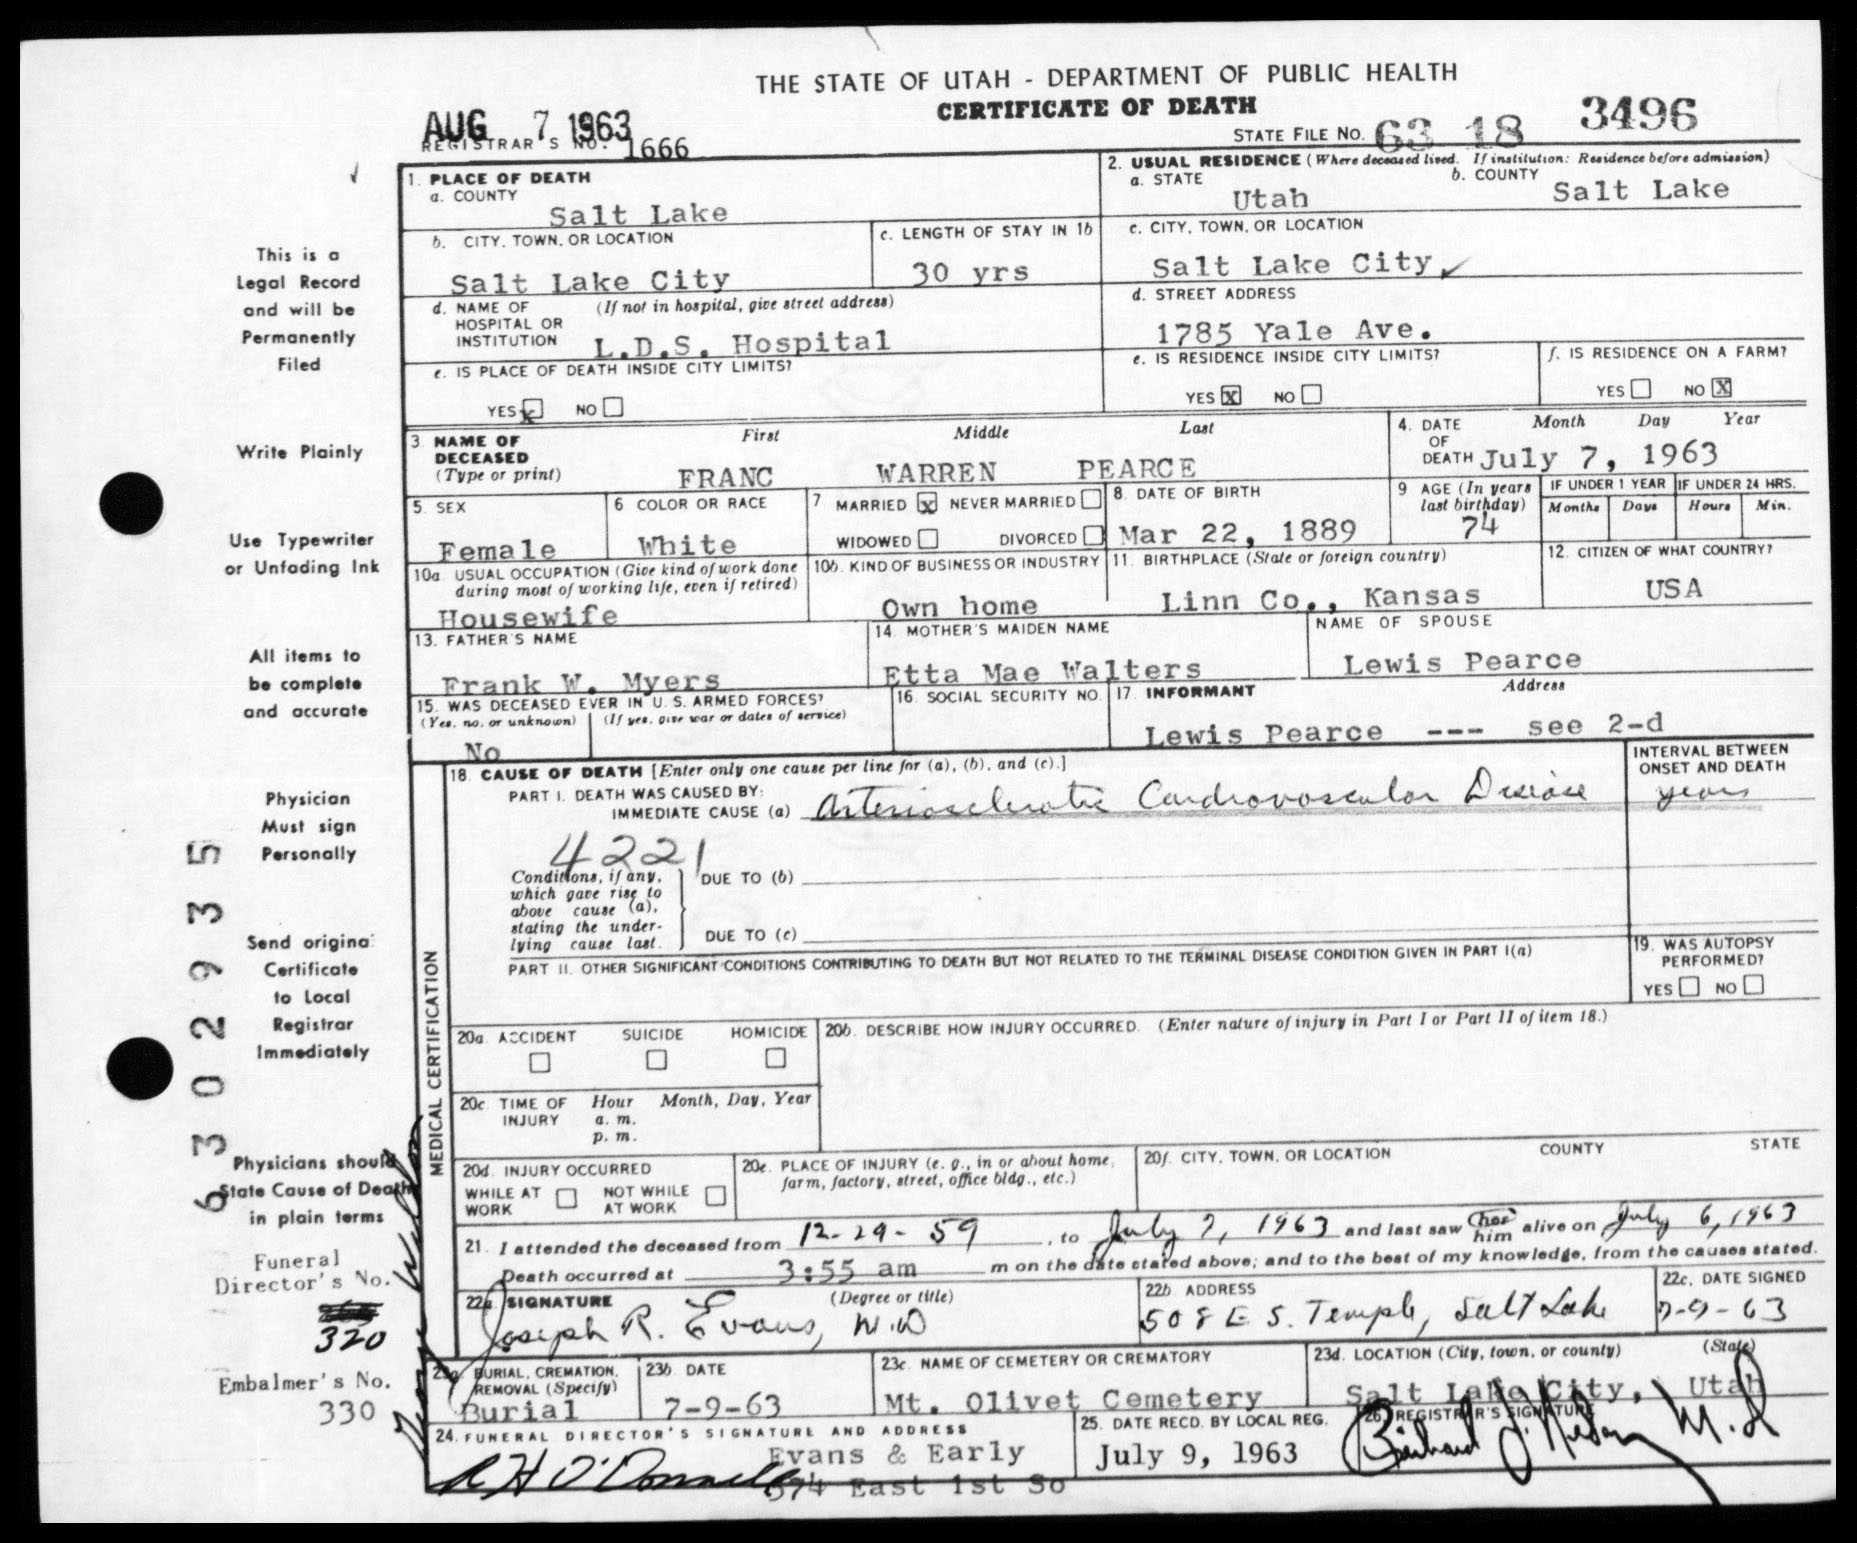 THE STATE OF UTAH - DEPARTMENT OF PUBLIC HEALTH
CERTIFICATE OF DEATH
AUG 7 1963
REGISTRAR'S NO. 1666
STATE FILE NO. 63 18 3496
1. PLACE OF DEATH
a. COUNTY
Salt Lake
2. USUAL RESIDENCE (Where deceased lived. If institution: Residence before admission)
a. STATE
Utah
b. COUNTY
Salt Lake
b. CITY, TOWN, OR LOCATION
Salt Lake City
c. LENGTH OF STAY IN 1b
30 yrs
c. CITY, TOWN, OR LOCATION
Salt Lake City
d. NAME OF HOSPITAL OR INSTITUTION
(If not in hospital, give street address)
L.D.S. Hospital
d. STREET ADDRESS
1785 Yale Ave.
e. IS PLACE OF DEATH INSIDE CITY LIMITS?
YES x NO
e. IS RESIDENCE INSIDE CITY LIMITS?
YES X NO
f. IS RESIDENCE ON A FARM?
YES NO X
3. NAME OF DECEASED
(Type or print)
First Middle Last
FRANC WARREN PEARCE
4. DATE OF DEATH
Month Day Year
July 7, 1963
5. SEX
Female
6 COLOR OR RACE
White
7 MARRIED x NEVER MARRIED
WIDOWED DIVORCED
8. DATE OF BIRTH
Mar 22, 1889
9 AGE (In years last birthday)
74
IF UNDER 1 YEAR
Months Days
IF UNDER 24 HRS.
Hours Min.
10a. USUAL OCCUPATION (Give kind of work done during most of working life, even if retired)
Housewife
10b. KIND OF BUSINESS OR INDUSTRY
Own home
11. BIRTHPLACE (State or foreign country)
Linn Co., Kansas
12. CITIZEN OF WHAT COUNTRY?
USA
13. FATHER'S NAME
Frank W. Myers
14. MOTHER'S MAIDEN NAME
Etta Mae Walters
NAME OF SPOUSE
Lewis Pearce
15. WAS DECEASED EVER IN U. S. ARMED FORCES?
(Yes, no, or unknown) (If yes, give war or dates of service)
No
16. SOCIAL SECURITY NO.
17. INFORMANT Address
Lewis Pearce --- see 2-d
MEDICAL CERTIFICATION
18. CAUSE OF DEATH [Enter only one cause per line for (a), (b), and (c).]
PART I. DEATH WAS CAUSED BY:
IMMEDIATE CAUSE (a) Arteriosclerotic Cardiovascular Disease
INTERVAL BETWEEN ONSET AND DEATH
years
4221
Conditions, if any, which gave rise to above cause (a), stating the underlying cause last.
DUE TO (b)
DUE TO (c)
PART II. OTHER SIGNIFICANT CONDITIONS CONTRIBUTING TO DEATH BUT NOT RELATED TO THE TERMINAL DISEASE CONDITION GIVEN IN PART I(a)
19. WAS AUTOPSY PERFORMED?
YES NO
20a. ACCIDENT SUICIDE HOMICIDE
20b. DESCRIBE HOW INJURY OCCURRED. (Enter nature of injury in Part I or Part II of item 18.)
20c. TIME OF INJURY
Hour Month, Day, Year
a. m.
p. m.
20d. INJURY OCCURRED
WHILE AT WORK NOT WHILE AT WORK
20e. PLACE OF INJURY (e. g., in or about home, farm, factory, street, office bldg., etc.)
20f. CITY, TOWN, OR LOCATION COUNTY STATE
21. I attended the deceased from 12-29-59, to July 7, 1963 and last saw her him alive on July 6, 1963
Death occurred at 3:55 am m on the date stated above; and to the best of my knowledge, from the causes stated.
22a. SIGNATURE (Degree or title)
Joseph R. Evans, M.D
22b. ADDRESS
508 E S. Temple, Salt Lake
22c. DATE SIGNED
7-9-63
23a. BURIAL, CREMATION, REMOVAL (Specify)
Burial
23b. DATE
7-9-63
23c. NAME OF CEMETERY OR CREMATORY
Mt. Olivet Cemetery
23d. LOCATION (City, town, or county) (State)
Salt Lake City, Utah
24. FUNERAL DIRECTOR'S SIGNATURE AND ADDRESS
Evans & Early
R H O'Donnell
574 East 1st So
25. DATE RECD. BY LOCAL REG.
July 9, 1963
26. REGISTRAR'S SIGNATURE
M.D
This is a
Legal Record
and will be
Permanently
Filed
Write Plainly
Use Typewriter
or Unfading Ink
All items to
be complete
and accurate
Physician
Must sign
Personally
Send original
Certificate
to Local
Registrar
Immediately
Physicians should
State Cause of Death
in plain terms
Funeral
Director's No.
320
Embalmer's No.
330
63029335